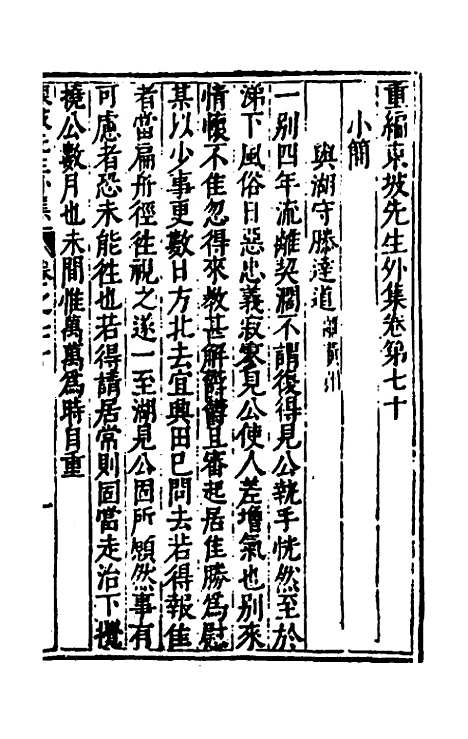 重編東坡先生外集卷第七十
小簡
與湖守滕達道
一別四年流離契濶不謂復得見公執手恍然至於
涕下風俗日惡忠義寂寥見公使人差增氣也別來
情懷不佳忽得來教甚解鬱鬱且審起居佳勝爲慰
某以少事更數日方北去宜興田已問去若得報佳
者當扁舟徑徃視之遂一至湖見公固所願然事有
可慮者恐未能徃也若得請居常則固當走治下攪
撓公數月也未間惟萬萬爲時自重
一